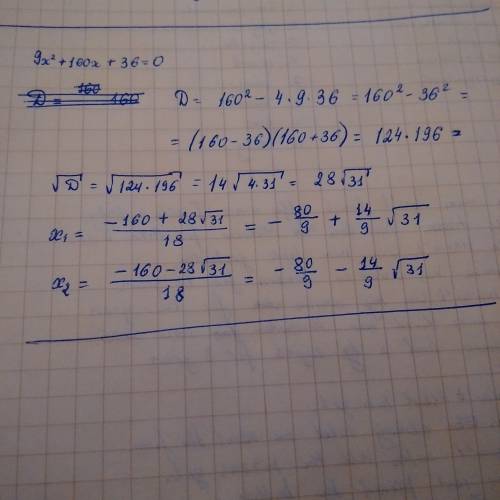 9x² + 160x + 36 = 0
D = 160² - 4 * 9 * 36 = 160² - 36² =
= (160 - 36)(160 + 36) = 124 * 196 =
√D = √(124 * 196) = 14√(4 * 31) = 28√31
x₁ = (-160 + 28√31)/18 = - 80/9 + 14/9 √31
x₂ = (-160 - 28√31)/18 = - 80/9 - 14/9 √31